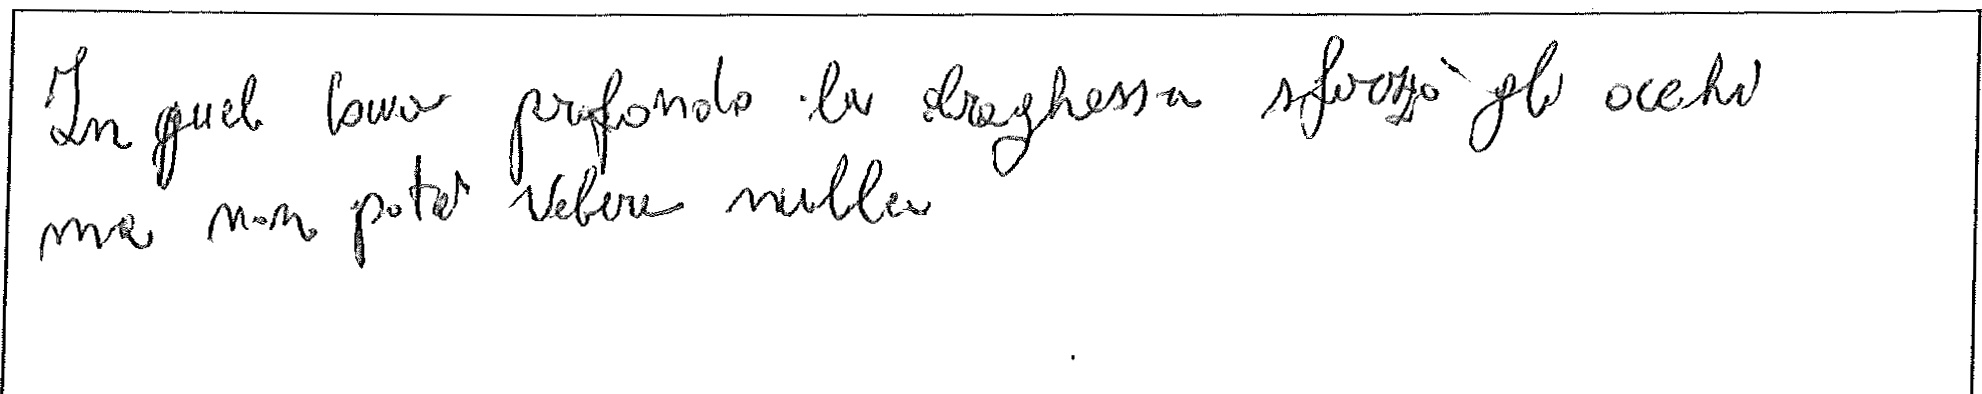 In quel covo profondo la draghessa sforzò gli occhi
ma non poté vedere nulla